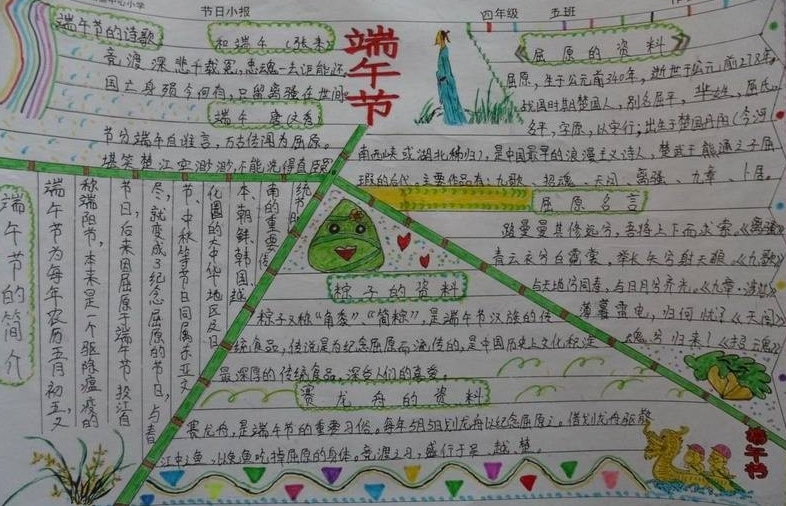 中心小学 节日小报 四年级 五班
端午节
端午节的诗歌
和端午(张耒)
竞渡深悲千载冤,忠魂一去讵能还。
国亡身殒今何有,只留离骚在世间。
端午 唐(文秀)
节分端午自谁言,万古传闻为屈原。
堪笑楚江空渺渺,不能洗得直臣冤。
《屈原的资料》
屈原,生于公元前340年,逝世于公元前278年。
战国时期楚国人,别名屈平,芈姓,屈氏,
名平,字原,以字行;出生于楚国丹阳(今河
南西峡或湖北秭归),是中国最早的浪漫主义诗人,楚武王熊通之子屈
瑕的后代。主要作品有:九歌、招魂、天问、离骚、九章、卜居。
屈原名言
路曼曼其修远兮,吾将上下而求索。《离骚》
青云衣兮白霓裳,举长矢兮射天狼。《九歌》
与天地兮同寿,与日月兮齐光。《九章·涉江》
薄暮雷电,归何忧?《天问》
魂兮归来!《招魂》
端午节的简介
端午节为每年农历五月初五,又
称端阳节,本来是一个驱除瘟疫的
节日,后来因屈原于端午节投江自
尽,就变成了纪念屈原的节日,与春
节、中秋等节日同属东亚文
化圈的大中华地区及日
本、朝鲜、韩国、越
南的重要传
统节日
粽子的资料
粽子又称“角黍”、“筒粽”,是端午节汉族的传
统食品,传说是为纪念屈原而流传的,是中国历史上文化积淀
最深厚的传统食品,深受人们的喜爱。
赛龙舟的资料
赛龙舟,是端午节的重要习俗。每年5月5日划龙舟以纪念屈原。借划龙舟驱散
江中之鱼,以免鱼吃掉屈原的身体。竞渡之习,盛行于吴、越、楚。
端午节